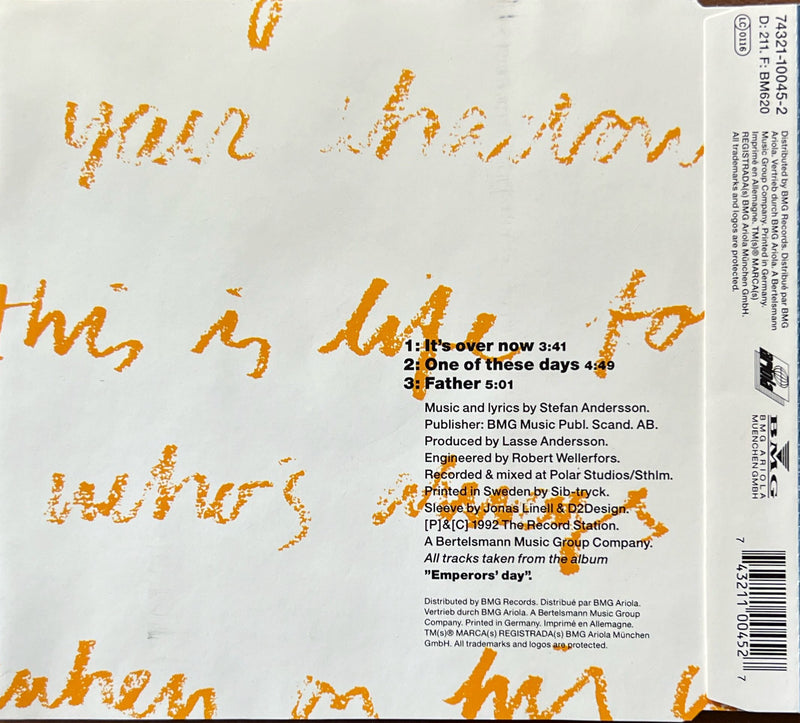 your shadow
this is life to
who's always
when in his
1: It's over now 3:41
2: One of these days 4:49
3: Father 5:01
Music and lyrics by Stefan Andersson.
Publisher: BMG Music Publ. Scand. AB.
Produced by Lasse Andersson.
Engineered by Robert Wellerfors.
Recorded & mixed at Polar Studios/Sthlm.
Printed in Sweden by Sib-tryck.
Sleeve by Jonas Linell & D2Design.
[P]&[C] 1992 The Record Station.
A Bertelsmann Music Group Company.
All tracks taken from the album
"Emperors' day".
Distributed by BMG Records. Distribué par BMG Ariola.
Vertrieb durch BMG Ariola. A Bertelsmann Music Group
Company. Printed in Germany. Imprimé en Allemagne.
TM(s)® MARCA(s) REGISTRADA(s) BMG Ariola München
GmbH. All trademarks and logos are protected.
74321-10045-2
D: 211. F: BM620
LC 0116
Distributed by BMG Records. Distribué par BMG
Ariola. Vertrieb durch BMG Ariola. A Bertelsmann
Music Group Company. Printed in Germany.
Imprimé en Allemagne. TM(s)® MARCA(s)
REGISTRADA(s) BMG Ariola München GmbH.
All trademarks and logos are protected.
ariola
BMG
BMG ARIOLA
MUENCHEN GMBH
7 43211 00452 7